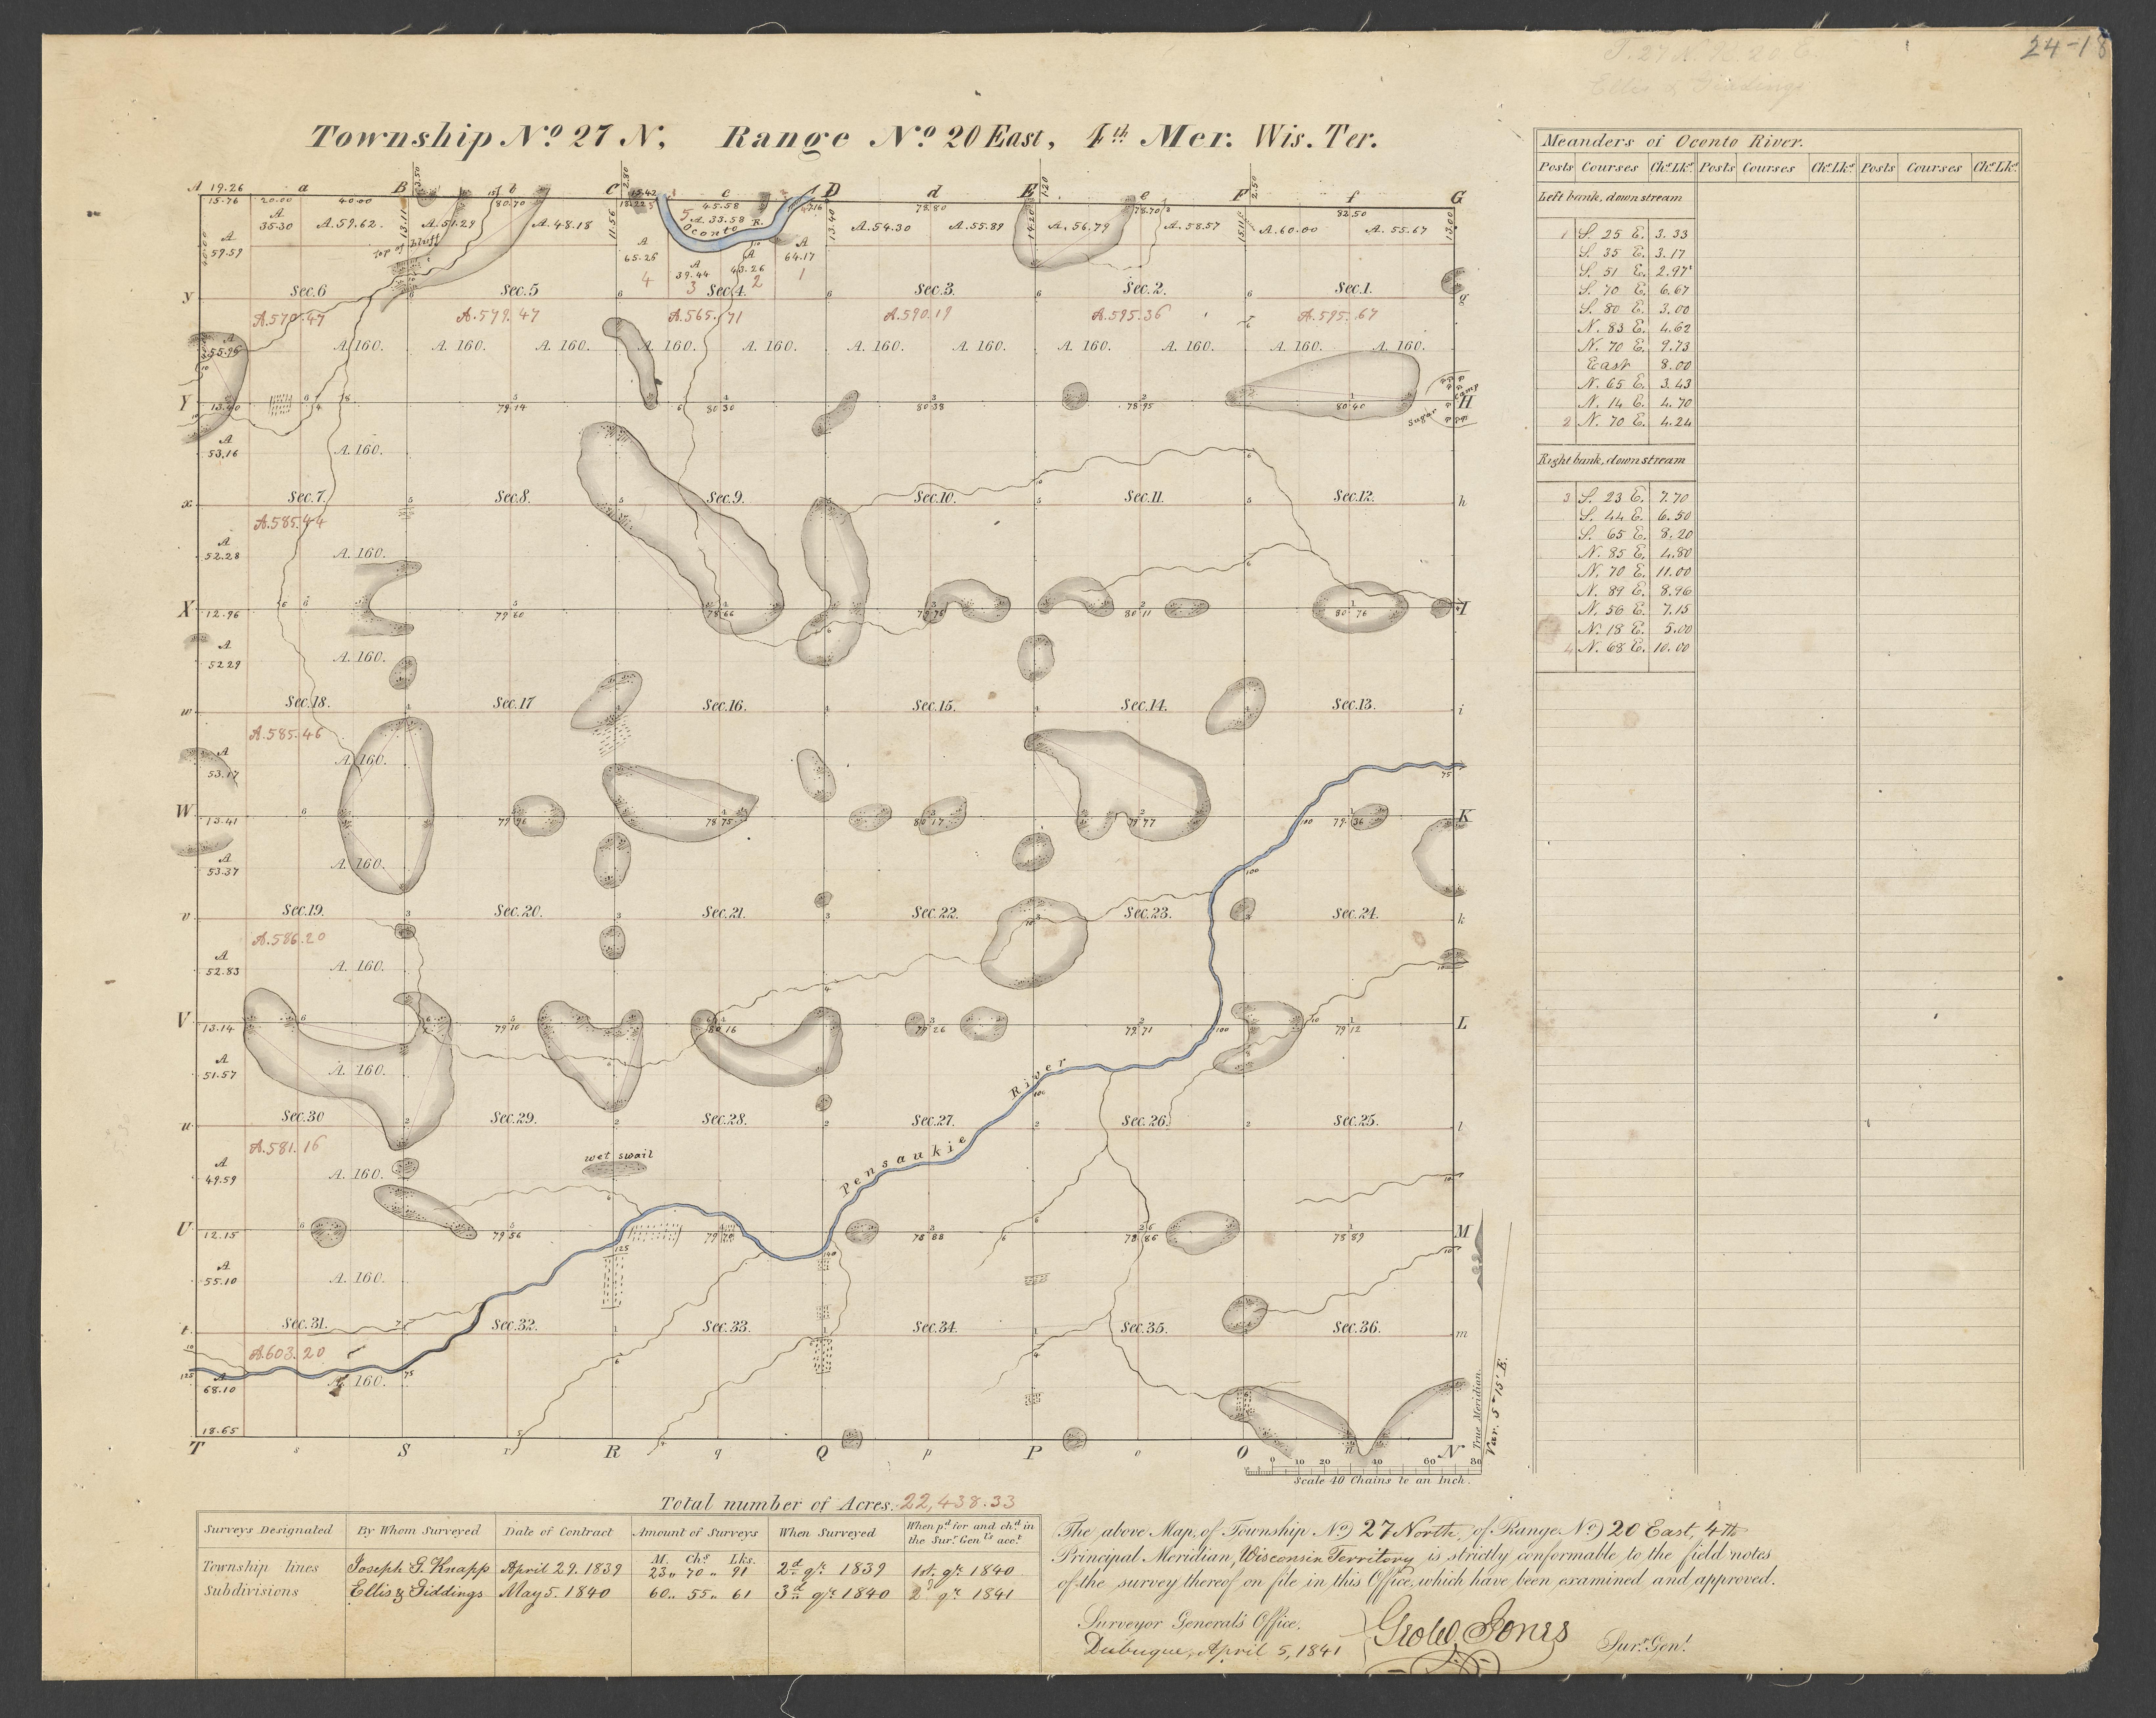 24-18
T. 27 N. R. 20 E.
Ellis & Giddings
Township No. 27 N, Range No. 20 East, 4th Mer. Wis. Ter.
A 19.26 a B b C c D d E e F f G
15.76 20.00 40.00 80.70 15.42 45.58 78.80 78.70 82.50
A 35.30 A. 59.62. A. 51.29 A. 48.18 A. 33.58 A. 54.30 A. 55.89 A. 56.79 A. 58.57 A. 60.00 A. 55.67
Oconto R.
A 59.59 top of bluff A 65.26 A 39.44 A 43.26 A 64.17
4 3 2 1
y Sec. 6 Sec. 5 Sec. 4. Sec. 3. Sec. 2. Sec. 1. g
A. 570.47 A. 579.47 A. 565.71 A. 590.19 A. 595.36 A. 595.67
A 55.95 A. 160. A. 160. A. 160. A. 160. A. 160. A. 160. A. 160. A. 160. A. 160. A. 160. A. 160.
Y 13.40 79 14 80 30 80 38 78 95 80 40 H
Sugar Camp
A 53.16 A. 160.
x Sec. 7. Sec. 8. Sec. 9. Sec. 10. Sec. 11. Sec. 12. h
A. 585.44
A 52.28 A. 160.
X 12.96 79 60 78 66 79 76 80 11 80 76 I
A 52.29 A. 160.
w Sec. 18. Sec. 17 Sec. 16. Sec. 15. Sec. 14. Sec. 13. i
A. 585.46
A 53.17 A. 160.
W 13.41 79 96 78 75 80 17 79 77 79 36 K
A 53.37 A. 160.
v Sec. 19. Sec. 20. Sec. 21. Sec. 22. Sec. 23. Sec. 24. k
A. 586.20
A 52.83 A. 160.
V 13.14 79 10 80 16 79 26 79 71 79 12 L
A 51.57 A. 160.
River
u Sec. 30 Sec. 29. Sec. 28. Sec. 27. Sec. 26. Sec. 25. l
A. 581.16
wet swail
Pensaukie
A 49.59 A. 160.
U 12.15 79 56 79 70 78 88 78 86 78 89 M
A 55.10 A. 160.
t Sec. 31. Sec. 32. Sec. 33. Sec. 34. Sec. 35. Sec. 36. m
A. 603.20
A 68.10 A. 160.
18.65
T s S r R q Q p P o O n N
True Meridian.
Var. 5° 15' E.
0 10 20 40 60 80
Scale 40 Chains to an Inch.
Meanders of Oconto River.
Posts Courses Chs. Lks. Posts Courses Chs. Lks. Posts Courses Chs. Lks.
Left bank, down stream
1 S. 25 E. 3.33
S. 35 E. 3.17
S. 51 E. 2.97
S. 70 E. 6.67
S. 80 E. 3.00
N. 83 E. 4.62
N. 70 E. 9.73
East 8.00
N. 65 E. 3.43
N. 14 E. 4.70
2 N. 70 E. 4.24
Right bank, down stream
3 S. 23 E. 7.70
S. 44 E. 6.50
S. 65 E. 8.20
N. 85 E. 4.80
N. 70 E. 11.00
N. 89 E. 8.96
N. 56 E. 7.15
N. 18 E. 5.00
4 N. 68 E. 10.00
Total number of Acres. 22,438.33
Surveys Designated By Whom Surveyed Date of Contract Amount of Surveys When Surveyed When pd. for and chd. in the Surr. Genls. acct.
M. Chs. Lks.
Township lines Joseph G. Knapp April 29. 1839 23 " 70 " 91 2d qr. 1839 1st. qr. 1840
Subdivisions Ellis & Giddings May 5. 1840 60 " 55 " 61 3d qr. 1840 2d qr. 1841
The above Map, of Township No. 27 North, of Range No. 20 East, 4th
Principal Meridian, Wisconsin Territory is strictly conformable to the field notes
of the survey thereof on file in this Office, which have been examined and approved.
Surveyor General's Office,
Dubuque, April 5, 1841
Geo. W. Jones Surr. Genl.